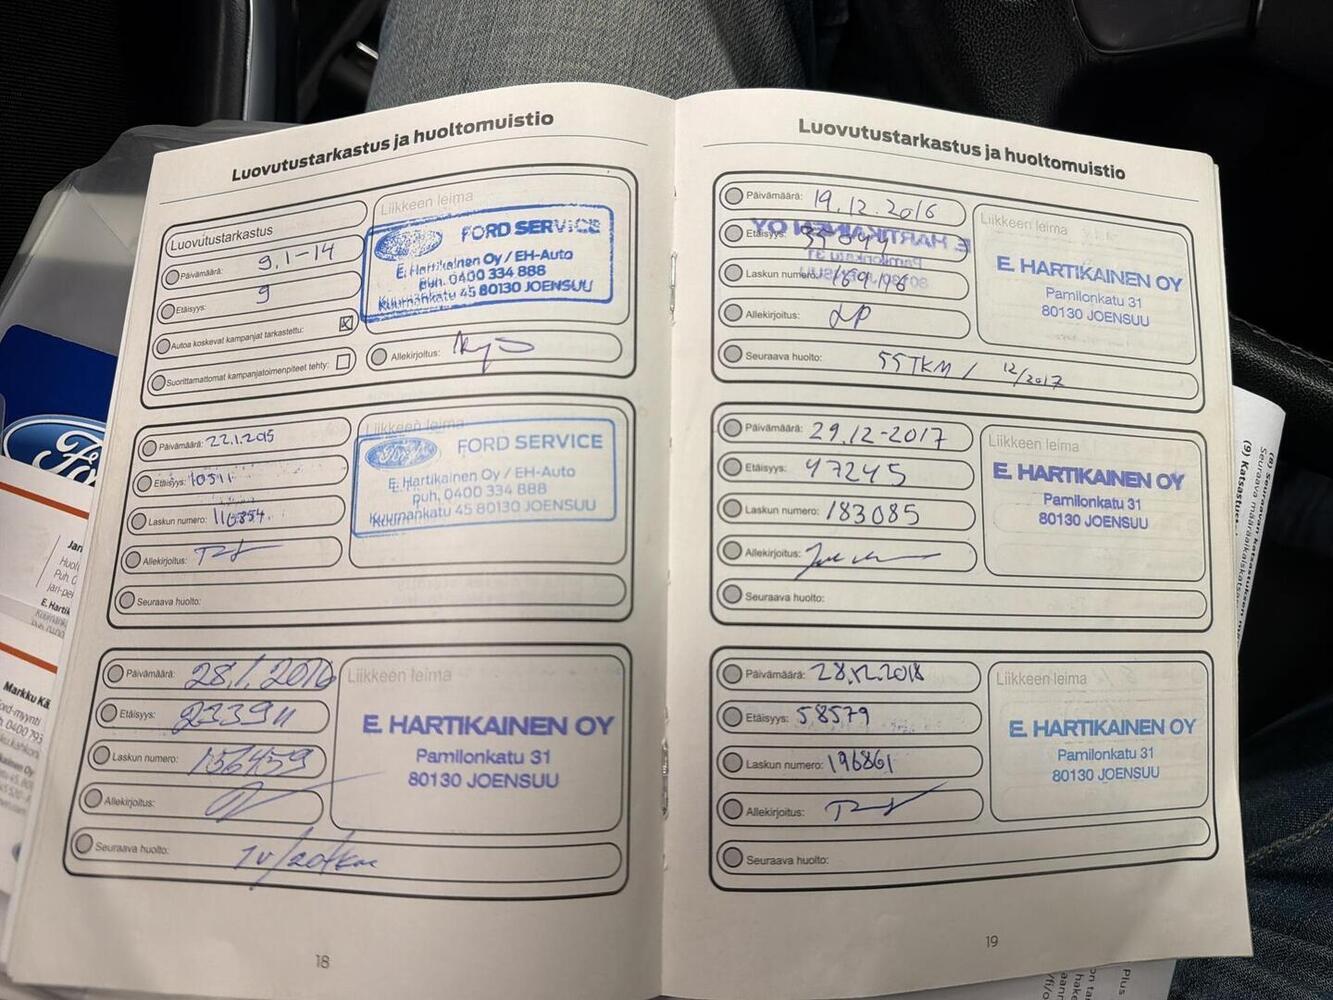 Luovutustarkastus ja huoltomuistio
Luovutustarkastus
Päivämäärä: 9.1-14
Etäisyys: 9
Autoa koskevat kampanjat tarkastettu:
Suorittamattomat kampanjatoimenpiteet tehty:
Liikkeen leima
FORD SERVICE
E. Hartikainen Oy / EH-Auto
puh. 0400 334 888
Kuurnankatu 45 80130 JOENSUU
Allekirjoitus:
Päivämäärä: 22.1.2015
Etäisyys: 10511
Laskun numero: 116354
Allekirjoitus:
Seuraava huolto:
Liikkeen leima
Ford
FORD SERVICE
E. Hartikainen Oy / EH-Auto
puh. 0400 334 888
Kuurnankatu 45 80130 JOENSUU
Päivämäärä: 28.1.2016
Etäisyys:
Laskun numero: 156459
Allekirjoitus:
Seuraava huolto: 1v/20tkm
Liikkeen leima
E. HARTIKAINEN OY
Pamilonkatu 31
80130 JOENSUU
18
Luovutustarkastus ja huoltomuistio
Päivämäärä: 19.12.2016
Etäisyys:
Laskun numero:
Allekirjoitus:
Seuraava huolto: 55TKM / 12/2017
Liikkeen leima
E. HARTIKAINEN OY
Pamilonkatu 31
80130 JOENSUU
Päivämäärä: 29.12-2017
Etäisyys: 47245
Laskun numero: 183085
Allekirjoitus:
Seuraava huolto:
Liikkeen leima
E. HARTIKAINEN OY
Pamilonkatu 31
80130 JOENSUU
Päivämäärä: 28.12.2018
Etäisyys: 58579
Laskun numero: 196861
Allekirjoitus:
Seuraava huolto:
Liikkeen leima
E. HARTIKAINEN OY
Pamilonkatu 31
80130 JOENSUU
19